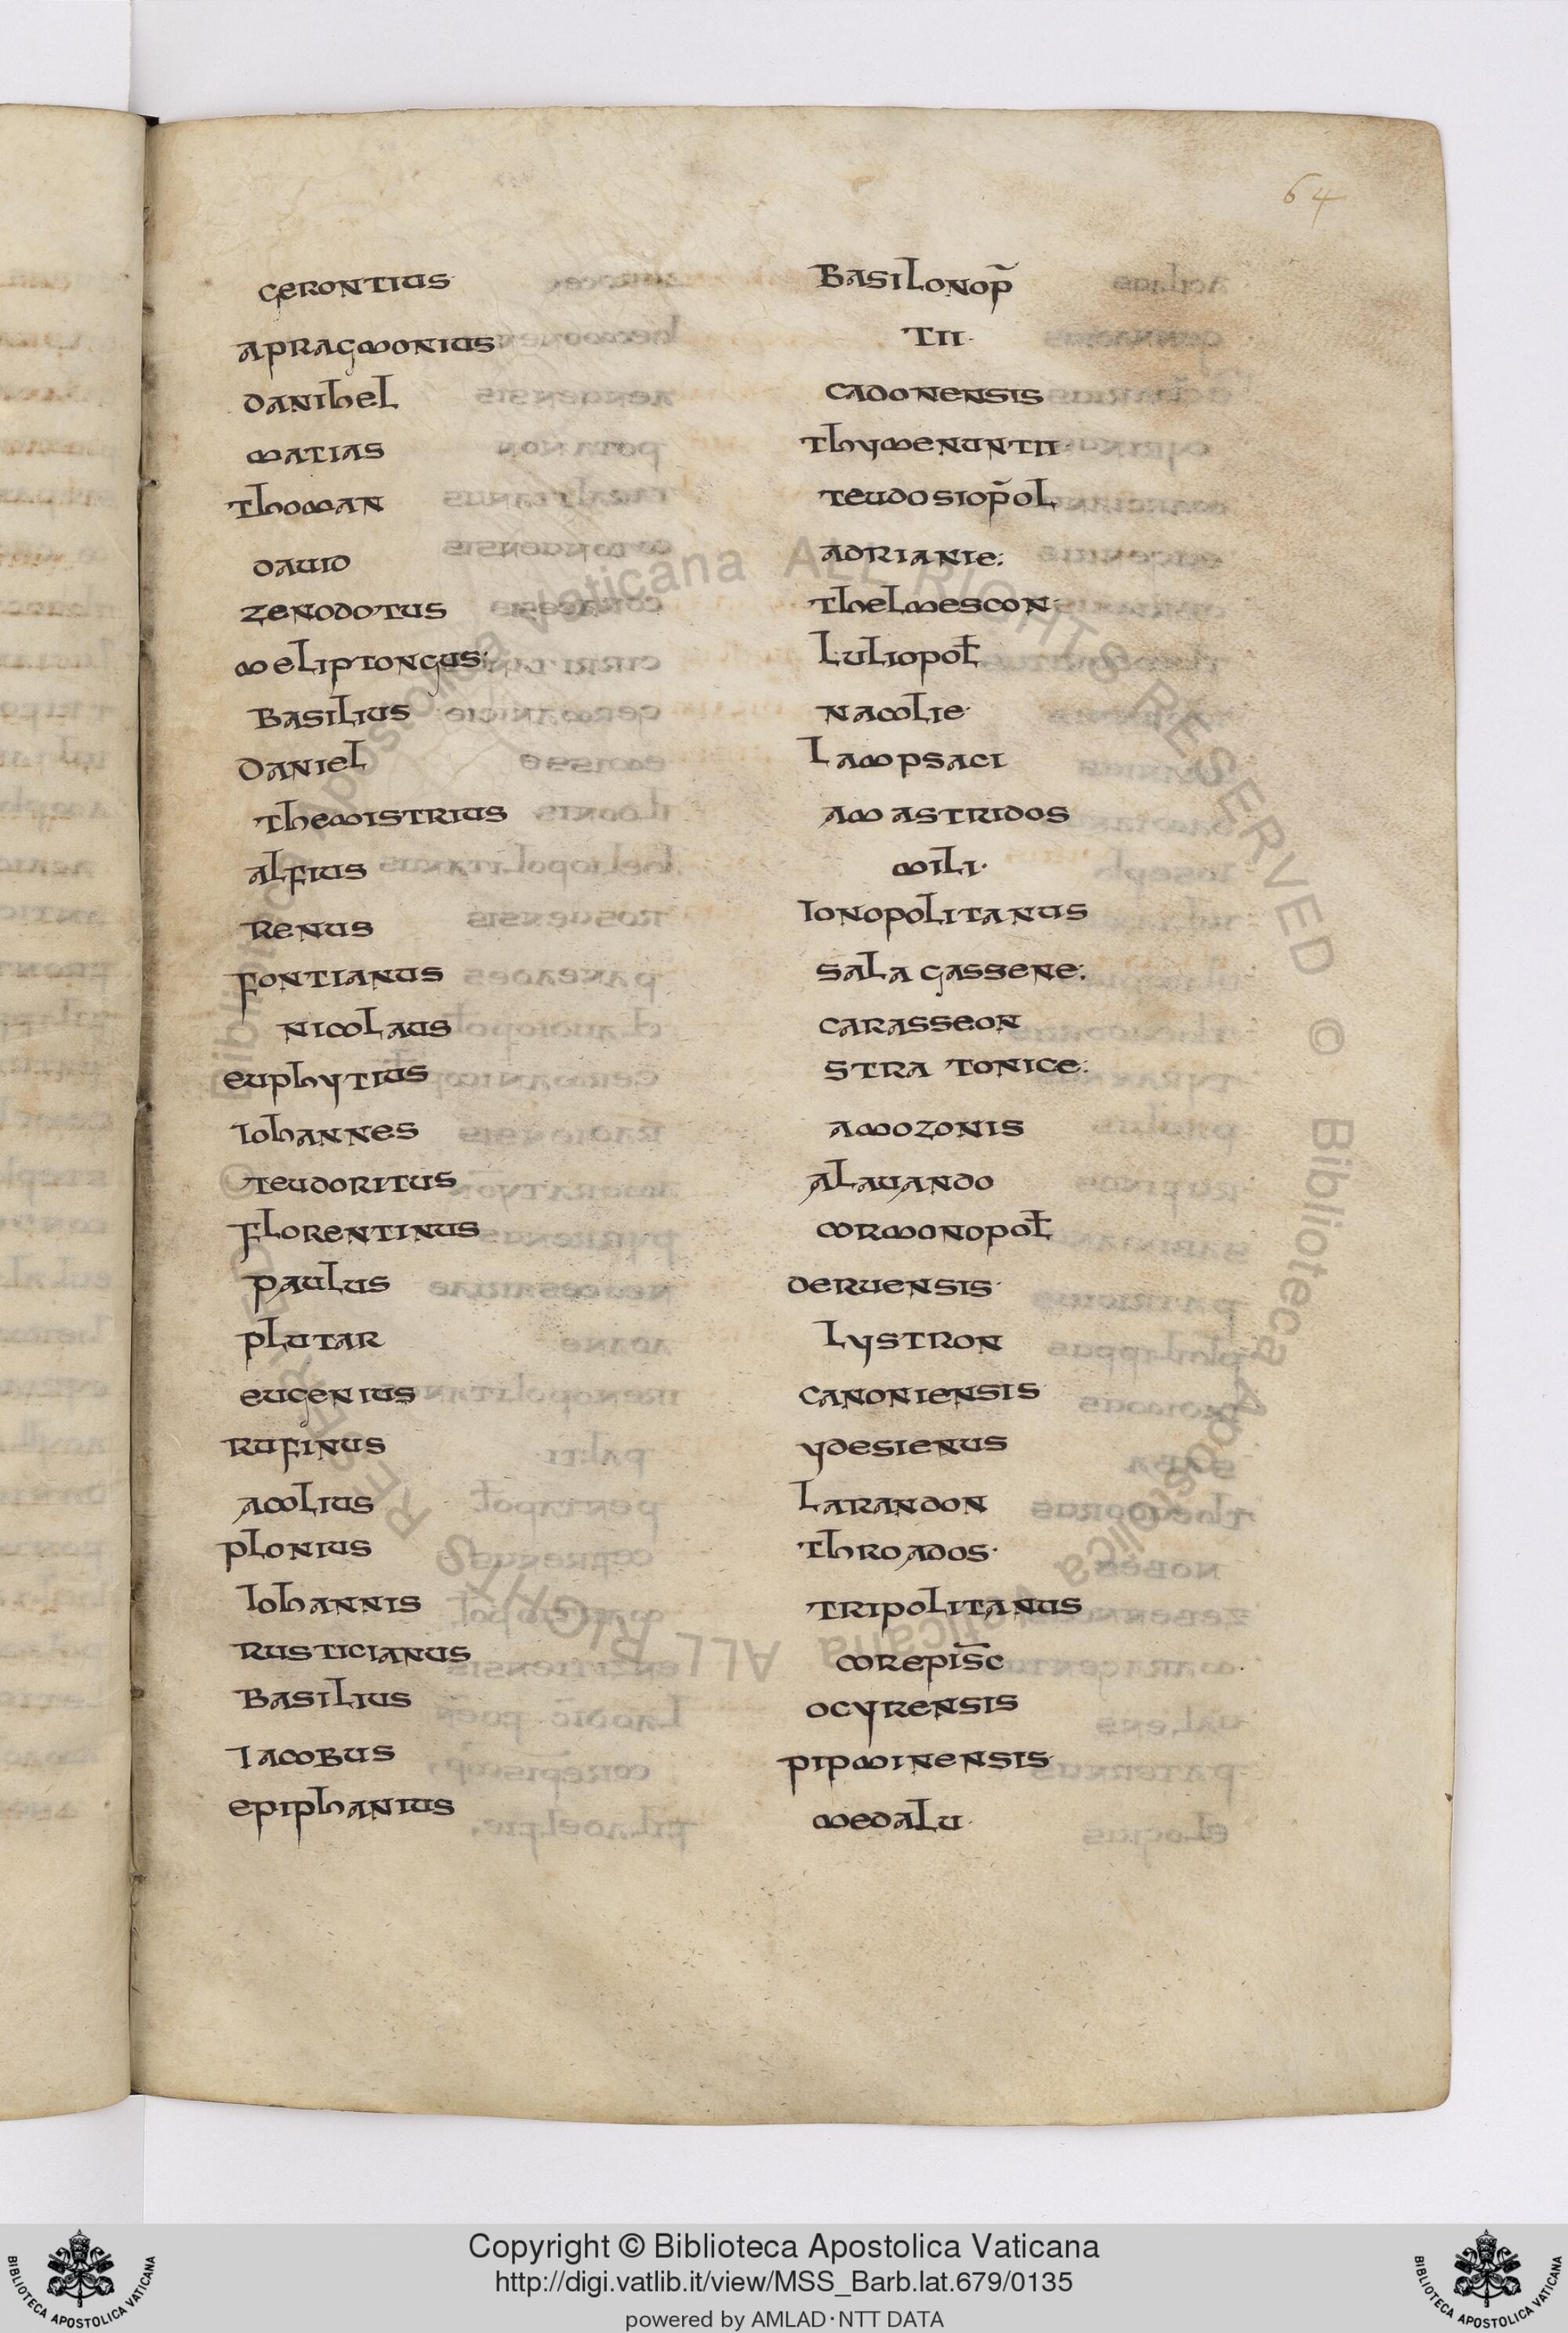 64
gerontius Basilonop̄
apragmonius tii·
danihel cadonensis
matias thymenuntii·
thoman teudosiop̄ol
dauid adrianie:
zenodotus thelmescon·
meliptongus· luliopoł
Basilius namlie·
Daniel lampsaci
themistrius amastridos
alfius mili·
Renus Ionopolitanus
fontianus salagassene:
nicolaus carasseon
euphytius stra tonice:
Iohannes amozonis
teudoritus alauando
florentinus mrmonopoł
paulus deruensis·
plutar lystron
eugenius canoniensis
rufinus ydesienus
amlius larandon
plonius throados·
Iohannis tripolitanus
rusticianus corepis̄c
Basilius ocyrensis
Iacobus pipminensis
epiphanius medalu·
Copyright © Biblioteca Apostolica Vaticana
http://digi.vatlib.it/view/MSS_Barb.lat.679/0135
powered by AMLAD·NTT DATA
Biblioteca Apostolica Vaticana ALL RIGHTS RESERVED © Biblioteca Apostolica Vaticana ALL RIGHTS RESERVED ©
BIBLIOTECA APOSTOLICA VATICANA
BIBLIOTECA APOSTOLICA VATICANA